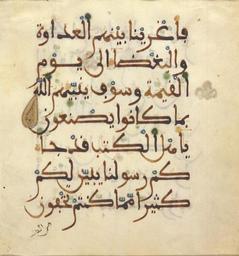 فأغرينا بينهم العداوة
والبغضا إلى يوم
القيمة وسوف ينبيهم الله
بما كانوا يصنعون
يأهل الكتب قد جا
كم رسولنا يبين لكم
كثيرا مما كنتم تخفون